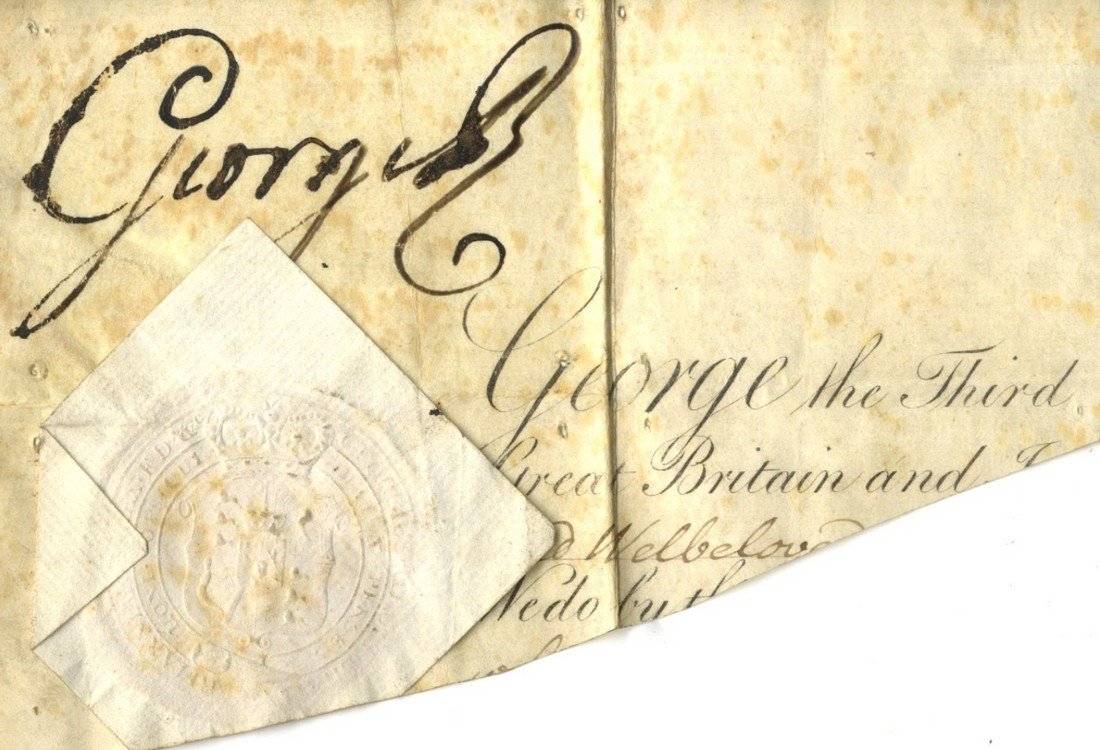 George R
George the Third
Great Britain and
Welbelov
We do by th